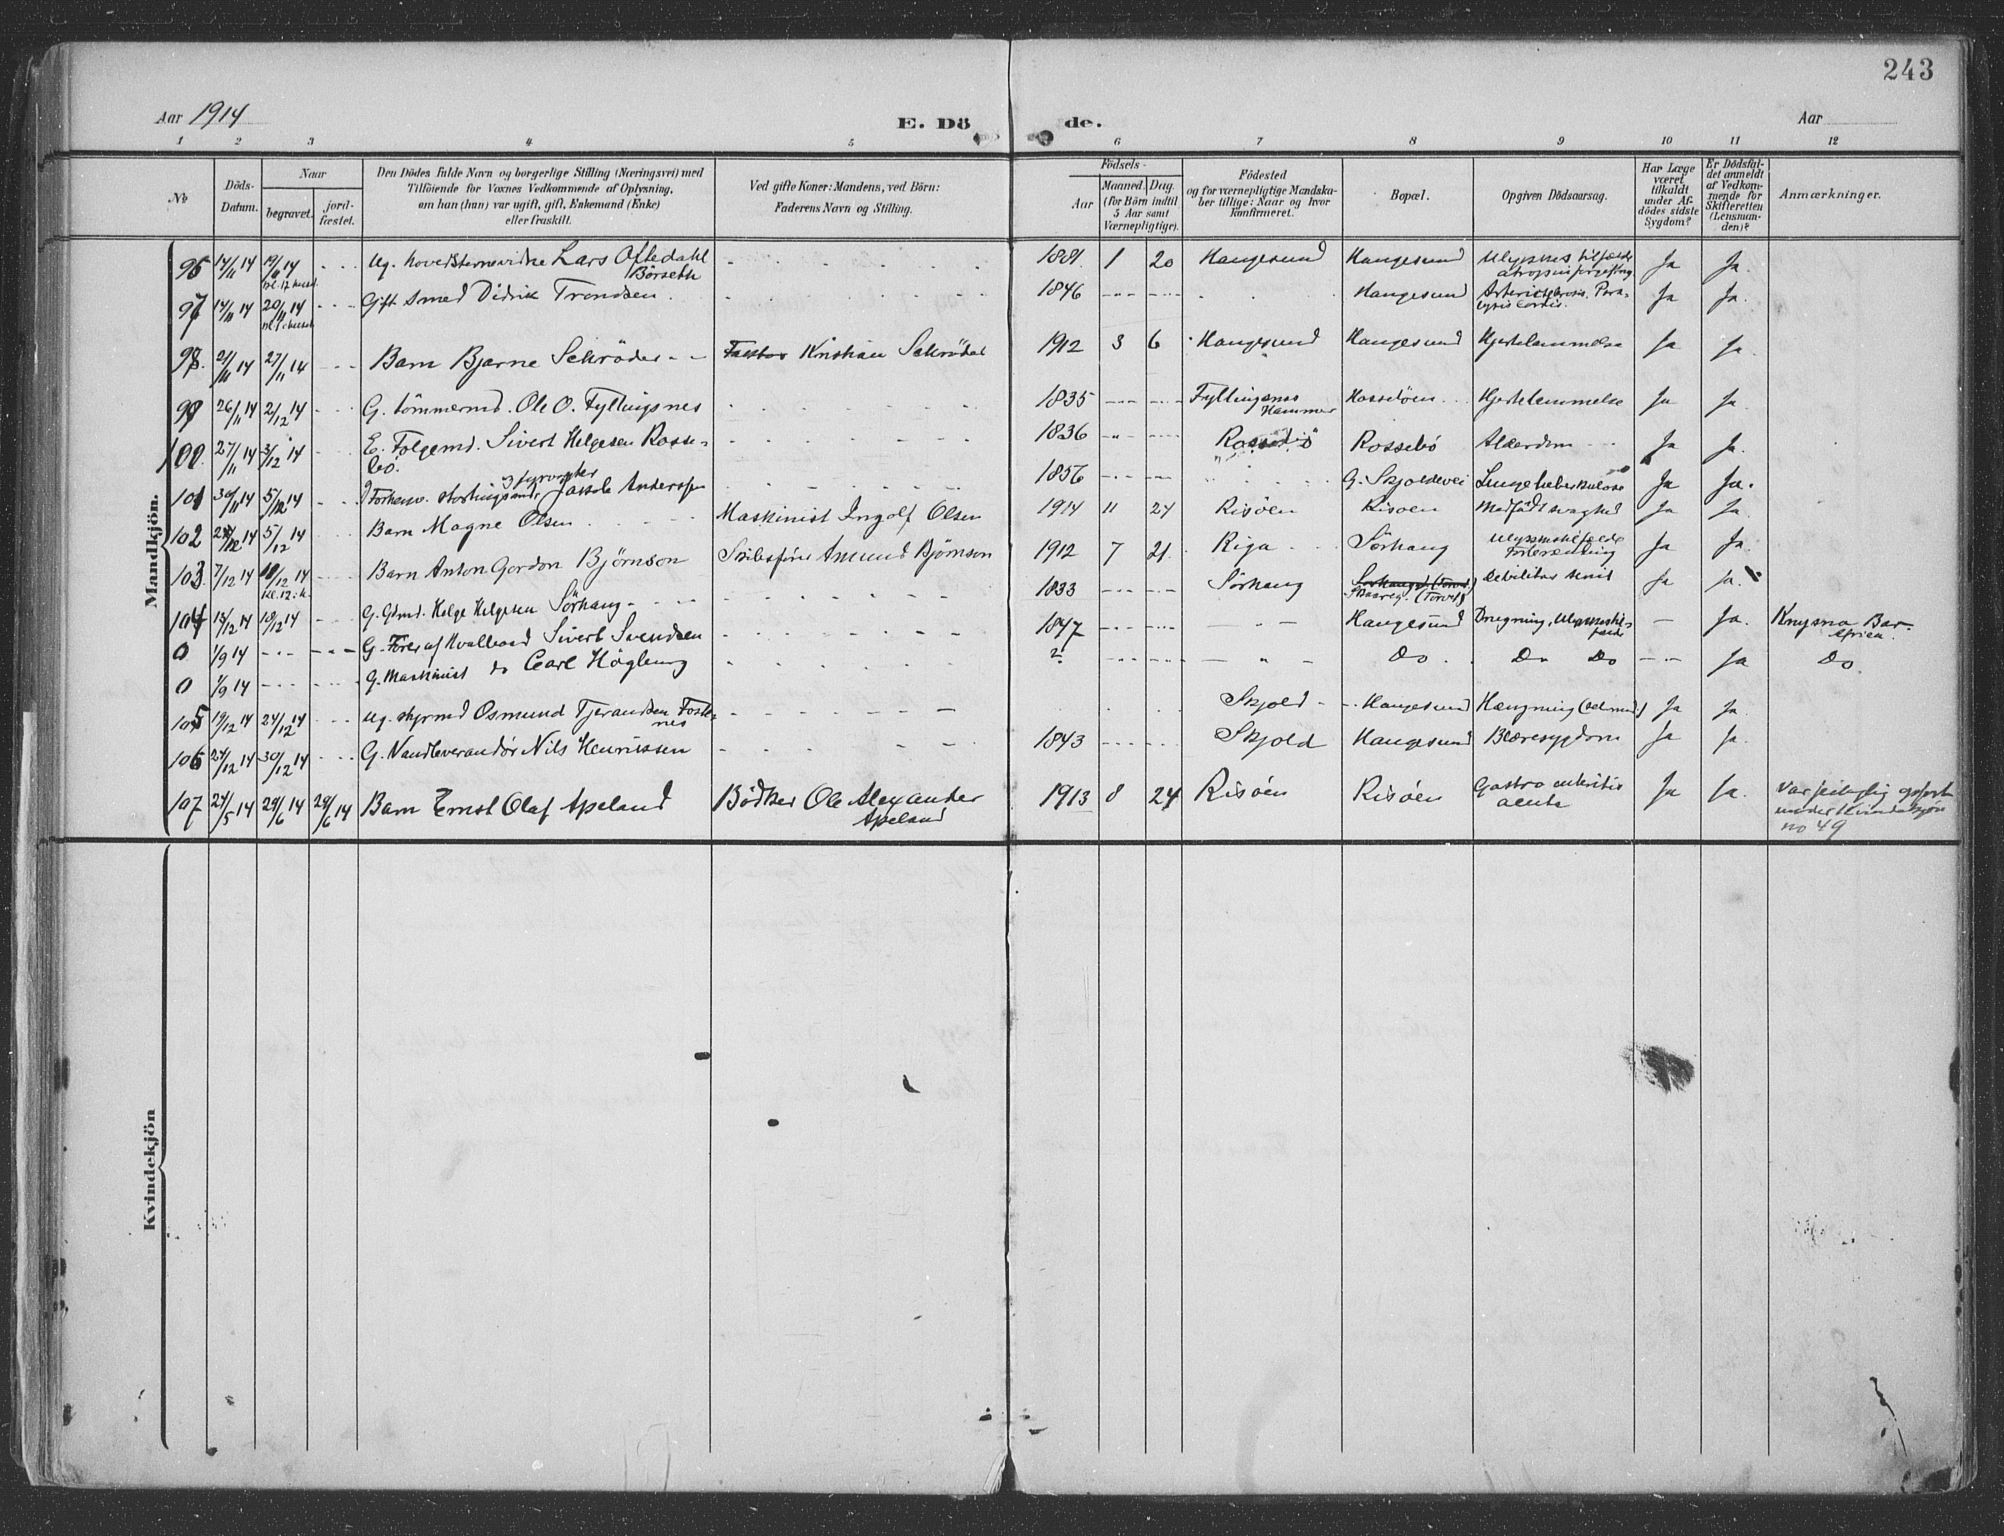 243
Aar 1914
E. Dö
de.
Aar
1 2 3 4 5 6 7 8 9 10 11 12
No
Döds-
Datum.
Naar
begravet.
jord-
fæstet.
Den Dödes fulde Navn og borgerlige Stilling (Næringsvei) med
Tilföiende for Voxnes Vedkommende af Oplysning,
om han (hun) var ugift, gift, Enkemand (Enke)
eller fraskilt.
Ved gifte Koner: Mandens, ved Börn:
Faderens Navn og Stilling.
Födsels-
Aar
Maaned.
Dag.
(for Börn indtil
5 Aar samt
Værnepligtige).
Födested
og for værnepligtige Mandska-
ber tillige: Naar og hvor
konfirmeret.
Bopæl.
Opgiven Dödsaarsag.
Har Læge
været
tilkaldt
under Af-
dödes sidste
Sygdom?
Er Dödsfal-
det anmeldt
af Vedkom-
mende for
Skifteretten
(Lensman-
den)?
Anmærkninger.
Mandkjön.
96 14/11 14 19/11 14 Ug. Lars Oftedahl 1881 1 20 Haugesund Haugesund Ja Ja.
Börseth
97 14/11 14 20/11 14 Gift Smed Didrik Trondsen 1846 Haugesund Ja Ja.
98. 21/11 14 27/11 14 Barn Bjarne Schröder Kristian Schröder 1912 3 6 Haugesund Haugesund Hjertelammelse Ja Ja.
99 26/11 14 2/12 14 G. tömmermd. Ole O. Fyllingsnes 1835 Fyllingsnes Hasselöen Hjertelammelse Ja Ja.
Hammer
100. 27/11 14 3/12 14 E. Folgemd. Sivert Helgesen Rosse- 1836 Rossebö Alderdom Ja Ja.
bö.
101 30/11 14 5/12 14 Jakob Anderssen 1856 G. Skjoldevei Lungetuberkulose Ja Ja.
102 14 5/12 14 Barn Magne Olsen Maskinist Ingolf Olsen 1914 11 24 Risöen Risöen Medfödt svaghed Ja Ja.
103 7/12 14 14 Barn Anton Gordon Björnson Skibsförer Amund Björnson 1912 7 21. Riga Sörhaug Ulykkestilfælde Ja Ja.
Forbrænding
104 15/12 14 19/12 14 G. Gbmd. Helge Helgesen Sörhaug 1833 Sörhaug Debilitas senil Ja Ja.
Skaareg. (Torvet)
0 1/9 14 G. Förer af Hvalbaad Sivert Svendsen 1847 Haugesund Drugning, Ulykkestil- Ja. Knysna Bar.
fælde Africa.
0 1/9 14 G. Maskinist do Carl Höglung ? Do Do Do Ja Do
105 19/12 14 24/12 14 Ug. styrmd Osmund Tjerandsen Skjold Haugesund Hængning Ja Ja.
106 24/12 14 30/12 14 G. Vandleverandör Nils Henrikssen 1843 Skjold Haugesund Blæresygdom Ja Ja.
107 24/5 14 29/6 14 29/6 14 Barn Ernst Olaf Apeland Bödker Ole Alexander 1913 8 24 Risöen Risöen Gastro enteritis Ja Ja. Var feilagtig opfört
Apeland acuta under Kvindekjön
no 49
Kvindekjön